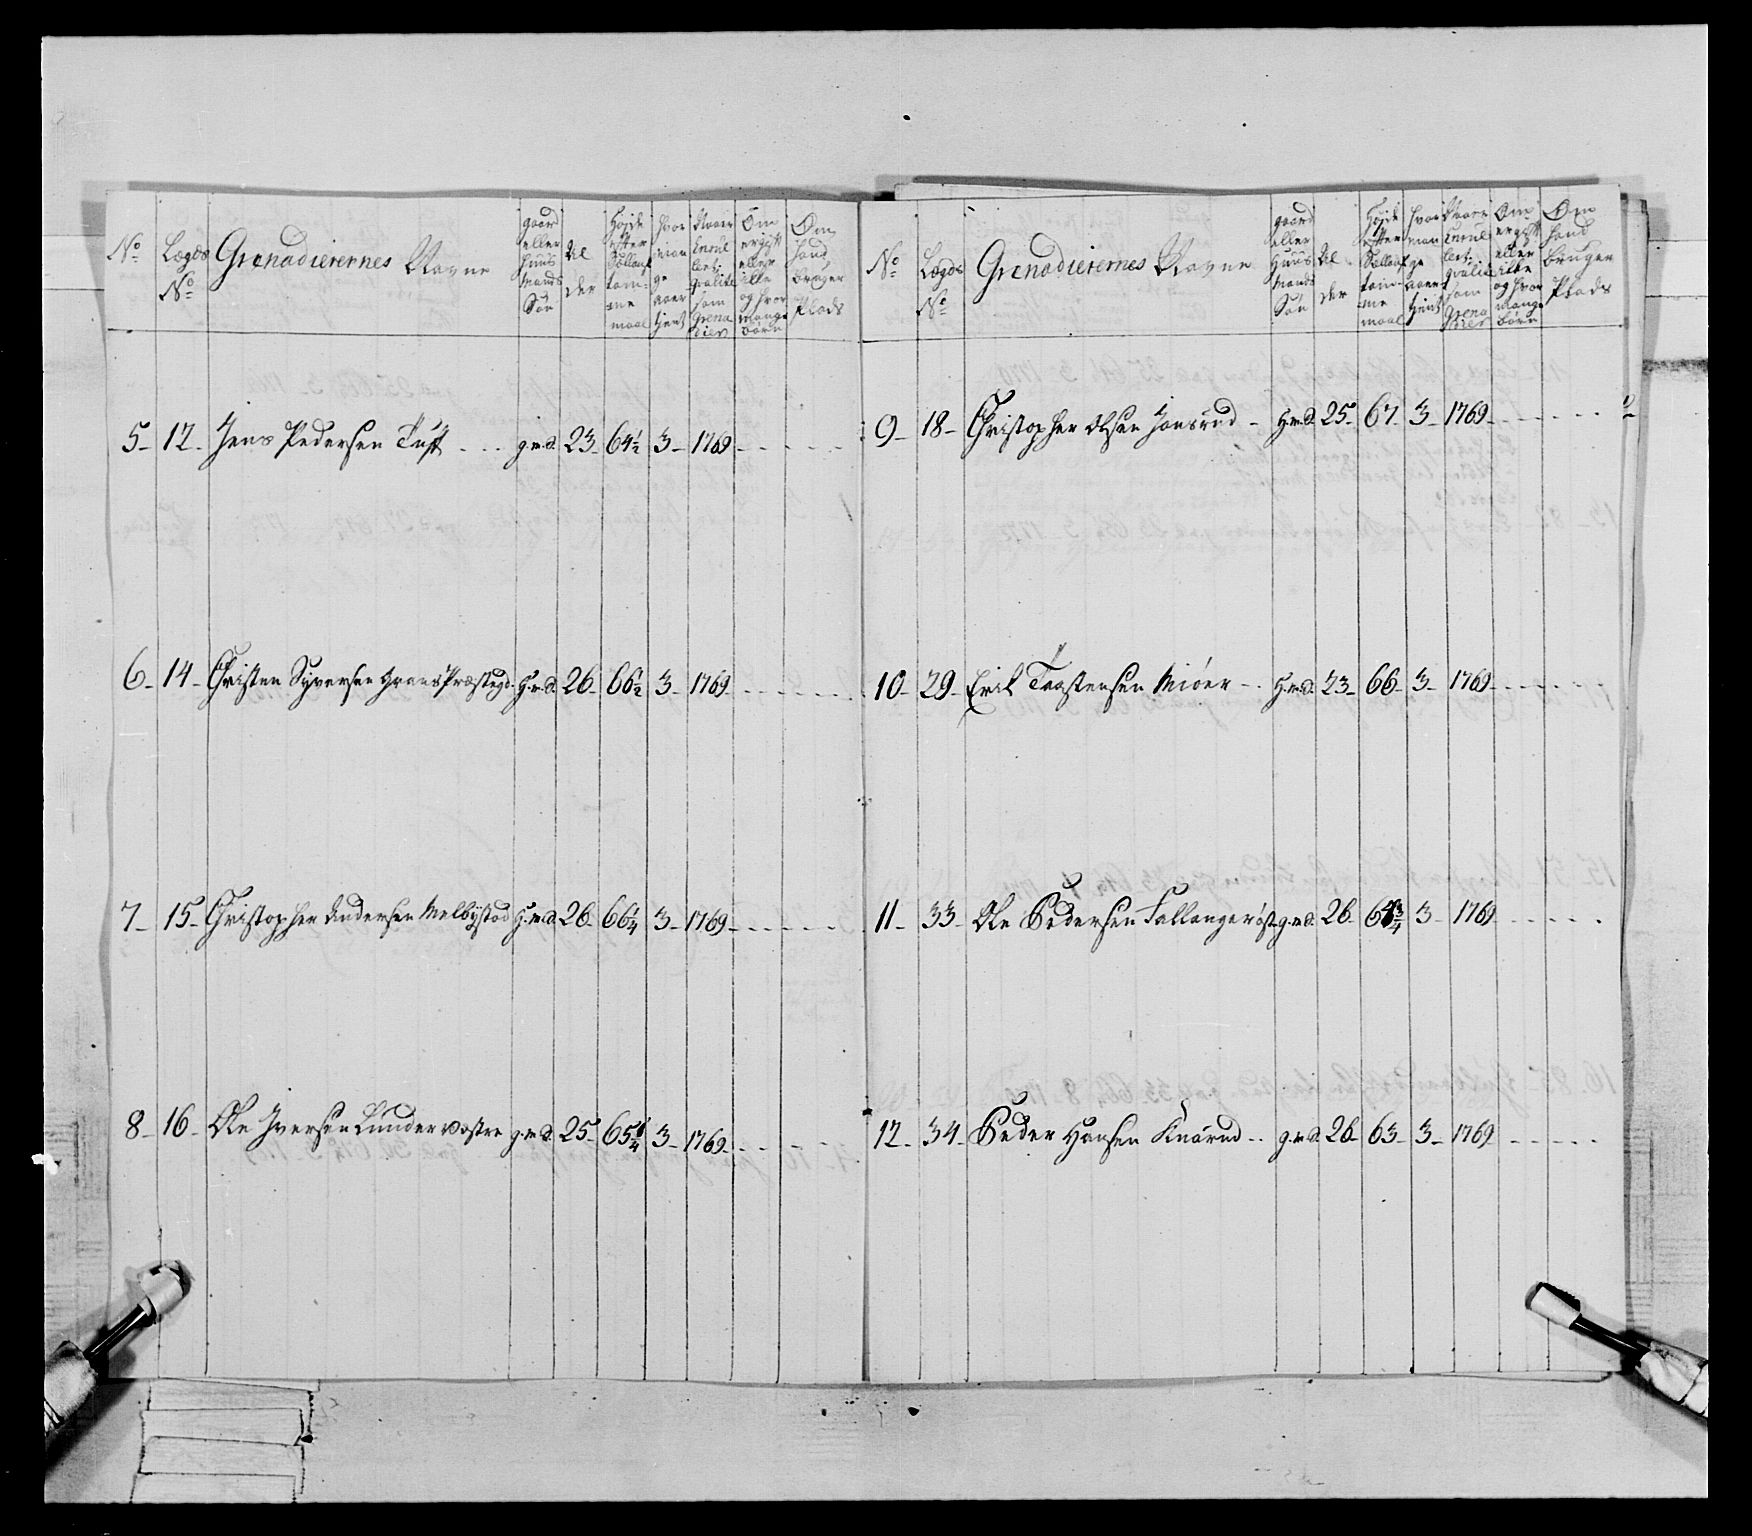 No Lægds No Grenadierernes Navne gaard eller Huus Mands Søn Al der Højde efter Sællans tom- me maal hvor man ge aar tient Naar Enrul lert som Grena dier Om ergift eller ikke og hvor mange børn Om hand bruger Plads
5 - 12 - Jens Pedersen Tuft . . . g.m.S. 23 - 64½ 3 - 1769 - - - - -
6 - 14 - Christen Syversen Grans Præstegd. H.m.S. 26 - 66½ 3 - 1769 - - - - -
7 - 15 - Christopher Andersen Melbystad H.m.S. 26 - 66¼ 3 - 1769 - - - - -
8 - 16 - Ole Iversen Lunder vestre g.m.S. 25 - 65¼ 3 - 1769 - - - - -
No Lægds No Grenadierernes Navne gaard eller Huus Mands Søn Al der Højde efter Sællans tom- me maal hvor man ge aar tient Naar Enrul lert som Grena dier Om ergift eller ikke og hvor mange børn Om hand bruger Plads
9 - 18 - Christopher Olsen Jonsrud - H.m.S. 25 - 67 - 3 - 1769 - - - - -
10 - 29 - Erik Trostensen Miöer - . H.m.S. 23 - 66 - 3 - 1769 - - - - -
11 - 33 - Ole Pedersen Fallanger öst g.m.S. 26 - 64¾ 3 - 1769 - - - - -
12 - 34 - Peder Hansen Knarud - . g.m.S. 26 - 63 - 3 - 1769 - - - - -